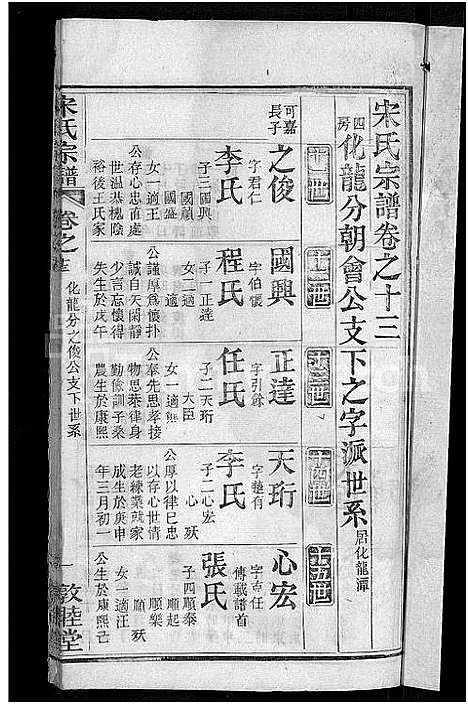 宋氏宗譜卷之十三
四房化龍分朝會公支下之字派世系居化龍潭
十一世
十二世
十三世
十四世
十五世
可嘉長子
之俊
字君仁
李氏
子三國興
國禎
國盛
女一適王
公存心忠直處
世温恭槐陰
裕後王氏家
國興
字伯
程氏
子一正達
女二適
適
公謹厚爲懷朴
誠自天閑靜
少言忘懷得
失生於戊午
正達
字引餘
任氏
子二天珩
大臣
女一適
公奉先思孝接
物思恭律身
勤儉訓子桑
農生於康熙
天珩
字
李氏
子二心宏
心
公厚以律己忠
以存心世情
老練業就家
成生於庚申
年三月初一
心宏
字克任
傳載譜首
張氏
子四順泰
順起
順樂
順
女一適汪
公生於康熙
宋氏宗譜
卷之十三
化龍分之俊公支下世系
一
敦睦堂